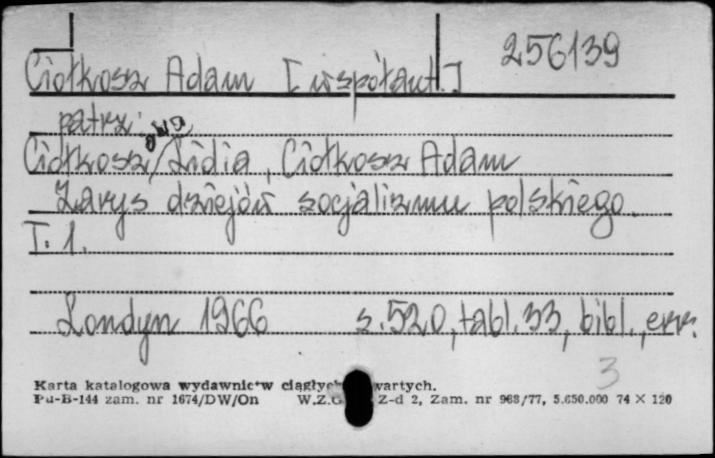 256139
Ciołkosz Adam [współaut.]
patrz:
Ciołkosz/owa Lidia, Ciołkosz Adam
Zarys dziejów socjalizmu polskiego.
T. 1.
Londyn 1966 s. 520, tabl. 33, bibl., err.
3
Karta katalogowa wydawnictw ciągłych wartych.
Pu-B-144 zam. nr 1674/DW/On W.Z.G. Z-d 2, Zam. nr 968/77, 5.650.000 74 × 120